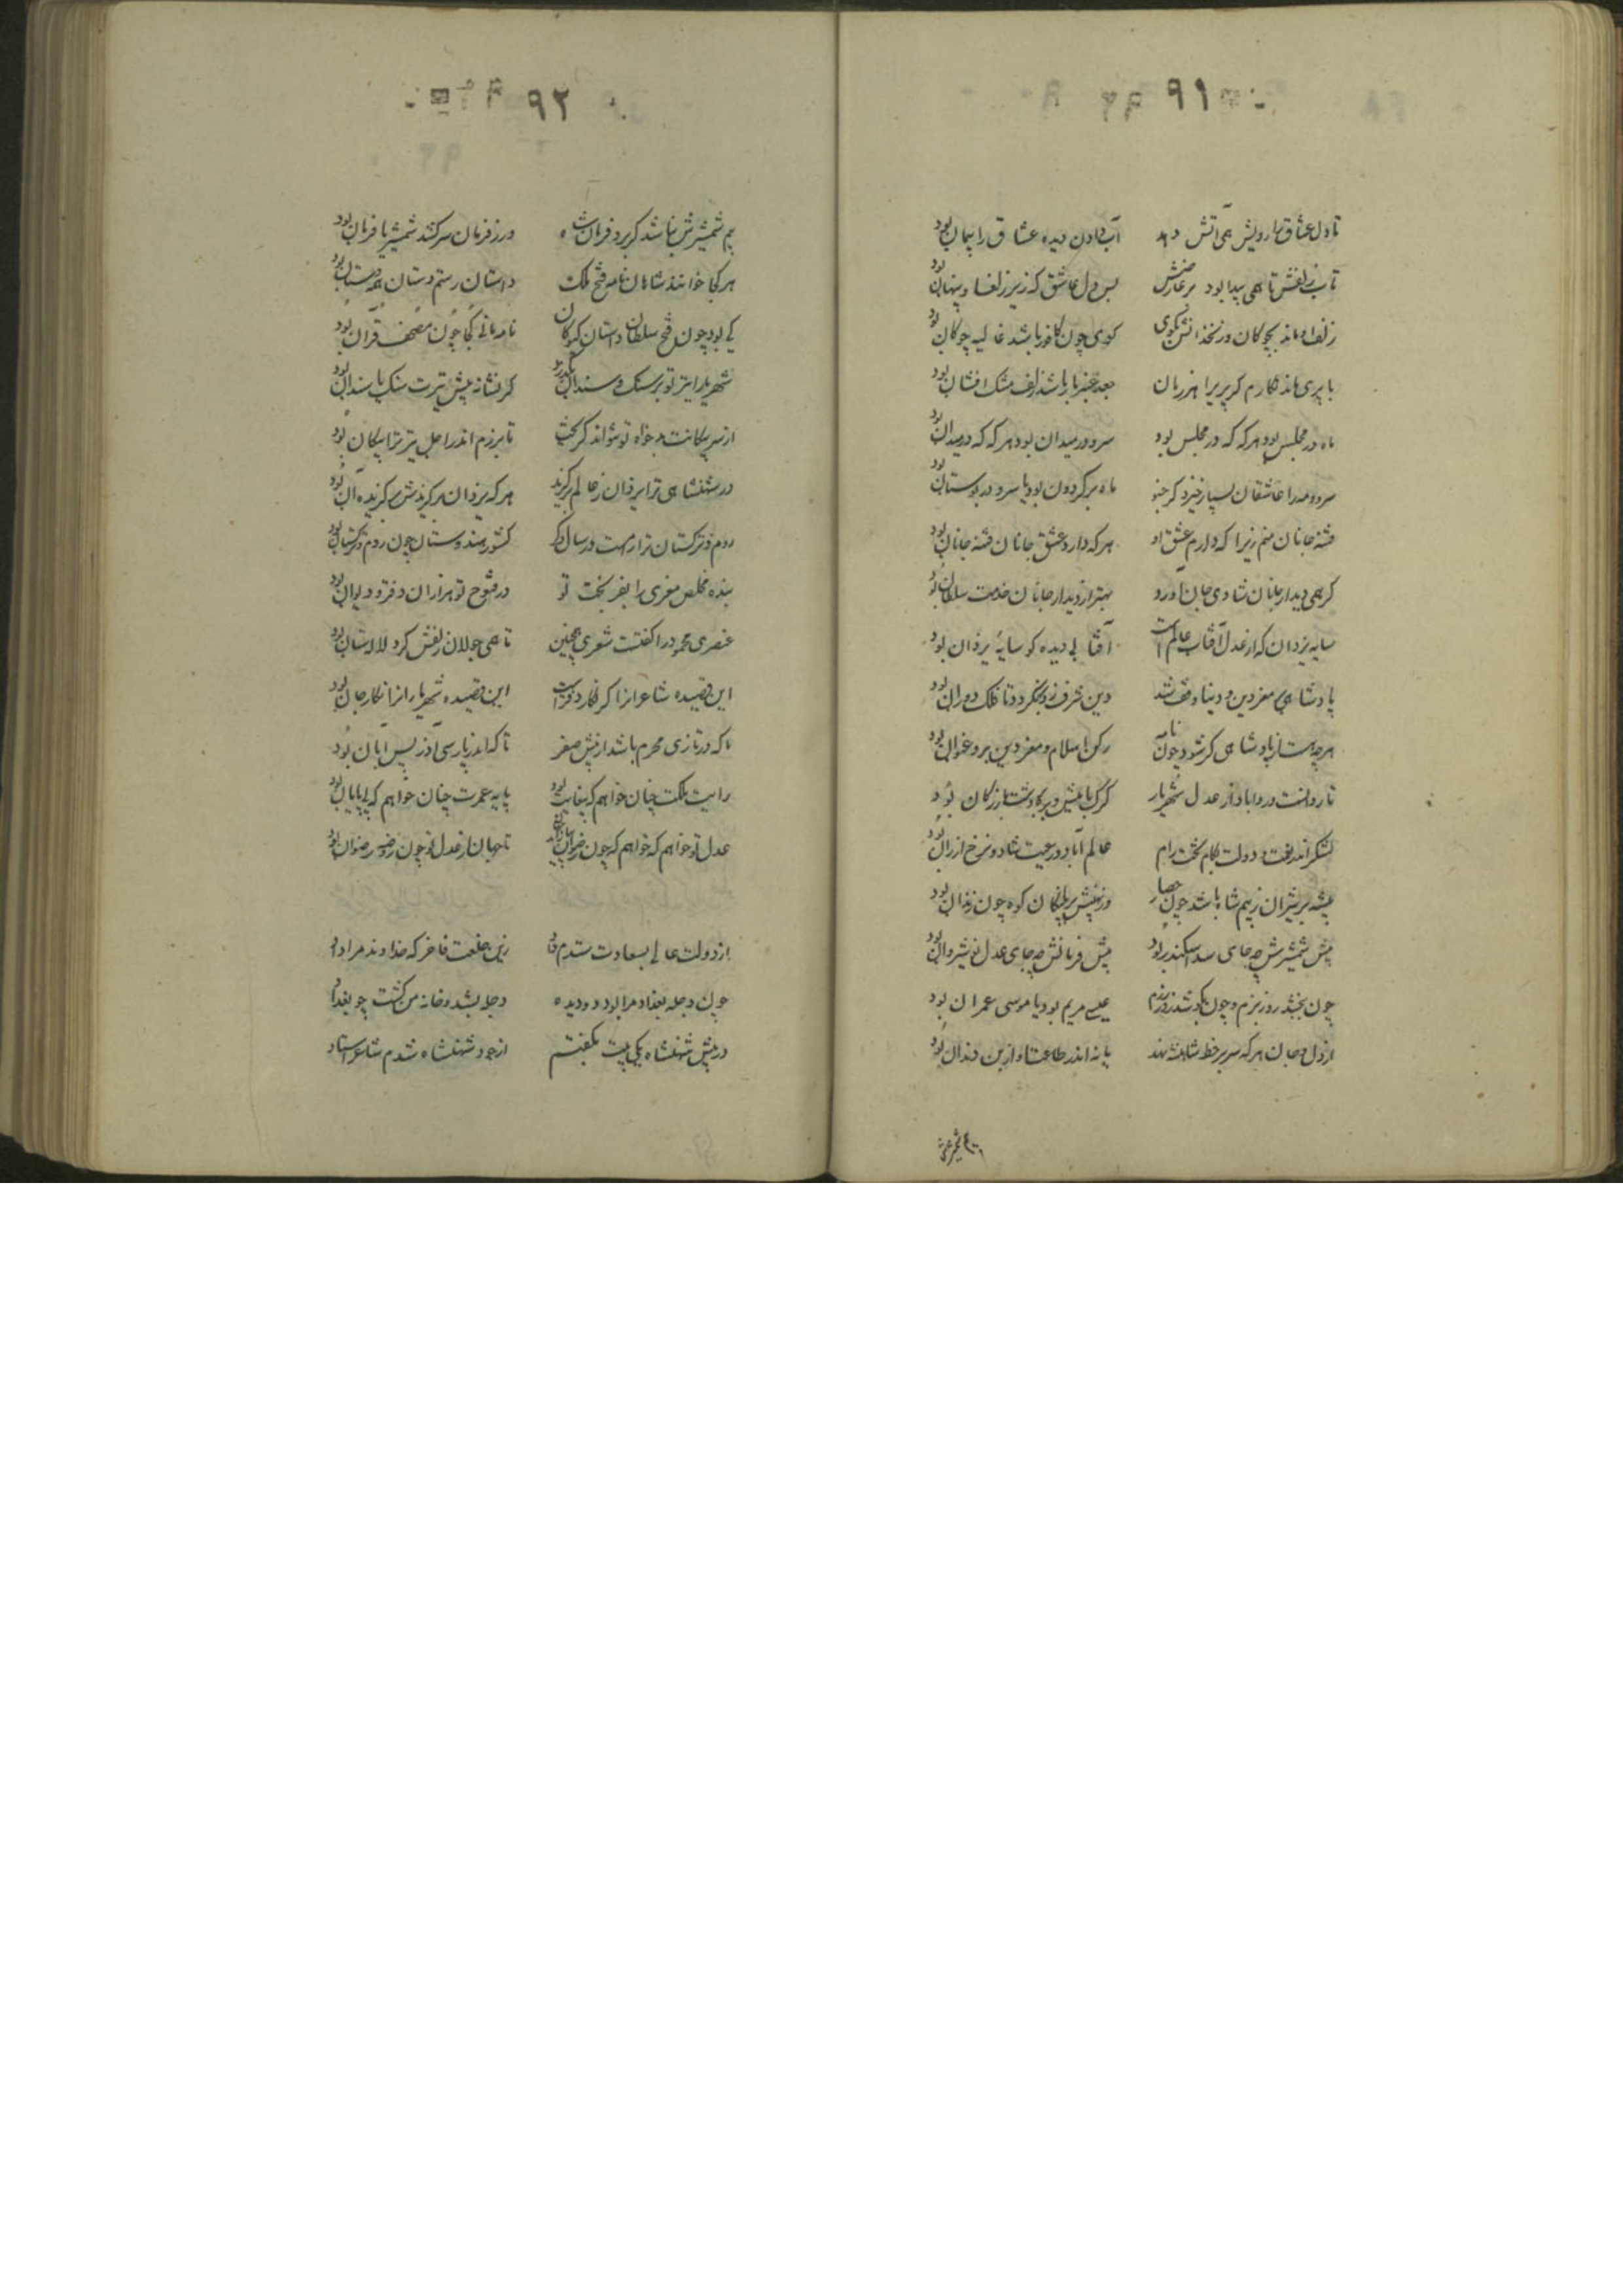 ۹۱
تا دل عشاق را رویش همی آتش دهد آب دادن دیده عشاق را پیمان بود
تاب زلفش تا همی پیدا بود بر عارضش بس دل عاشق که زیر زلف او پنهان بود
زلف او ماند بچوکان ور زنخدانش بکوی کوی چون کافور باشد غالیه چوکان بود
با پری ماند نکارم کر پری را هر زمان جعد عنبر بار باشد زلف مشک افشان بود
ماه در مجلس بود هر که که در مجلس بود سرو در میدان بود هر که که در میدان بود
سرو و مه را عاشقان بسیار خیزد کر جنو ماه بر کردون بود یا سرو در بوستان بود
فتنه جانان منم زیرا که دارم عشق او هر که دارد عشق جانان فتنه جانان بود
کر همی دیدار جانان شادی جان آورد بهتر از دیدار جانان خدمت سلطان بود
سایه یزدان که از عدل آفتاب عالم است آفتابی دیده کو سایهٔ یزدان بود
پادشاهی معز دین و دنیا وقف شد دین شرف زو نکردد تا فلک دوران بود
هر چه هست از پادشاهی کر شود چون نامه رکن اسلام و معز دین برو عنوان بود
تا روا نیست در دابا داز عدل شهریار کرک با میش و بره کاو دشت بازرکان بود
لشکر اندر نعمت و دولت بکام و بخت رام عالم آباد و رعیت شاد و نرخ ارزان بود
بیشه بر شیران ز بیم شاه باشد چون حصار وز نهیبش بر پلنکان کوه چون زندان بود
پیش شمشیرش چه جای سد اسکندر بود پیش فرمانش چه جای عدل نوشیروان بود
چون ببخشد روز بزم و چون بکوشد روز رزم عیسی مریم بود یا موسی عمران بود
از دل و جان هر که سر بر خط شاهنشه نهد پا نه اندر طاعت او از بن دندان بود
۹۲
بیم شمشیرش نباشد کر برد فرمان شاه ور ز فرمان سر کشد شمشیر یا فرمان بود
هر کجا خوانند شاهان نامه فتح ملک داستان رستم دستان همه دستان بود
کی بود چون فتح سلطان داستان کودکان نامه مانی کجا چون مصحف قرآن بود
شهریارا تیر تو بر سنک و سندان بکذرد کر نشانه پیش تیرت سنک یا سندان بود
از سر پیکانت بدخواه تو نتواند کریخت تا برزم اندر اجل تیر ترا پیکان بود
در شهنشاهی ترا یزدان ز عالم برکزید هر که یزدان برکزیدش برکزیده آن بود
روم و ترکستان تراست و سال دکر کشور هندوستان چون روم و ترکستان بود
بنده مخلص معزی را بفر بخت تو در فتوح تو هزاران دفتر و دیوان بود
عنصری محمود را کفتست شعری همچنین تا همی جولان زلفش کرد لالستان بود
این قصیده شاعرانرا کر نکار دفترست این قصیده شهریارانرا نکار جان بود
تا که در تازی محرم باشد از پیش صفر تا که اندر پارسی آذر پس آبان بود
رایت ملکت چنان خواهم که بیغایت بود پایه عمرت چنان خواهم که بی پایان بود
عدل تو خواهم که خواهم که چون رضوان تا جهان از عدل تو چون روضه رضوان بود
از دولت عالی بسعادت شدم زین خلعت فاخر که خداوند مرا داد
چون دجله بغداد مرا بود دو دیده دجله بشد و خانه من کشت چو بغداد
در پیش شهنشاه یکی بیت بکفتم از جود شهنشاه شدم شاعر استاد